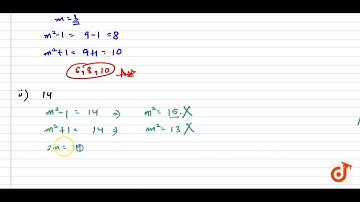 m² - 1 = 9 - 1 = 8
m² + 1 = 9 + 1 = 10
6, 8, 10 Ans
ii) 14
m² - 1 = 14 ⇒ m² = 15 X
m² + 1 = 14 ⇒ m² = 13 X
2m =